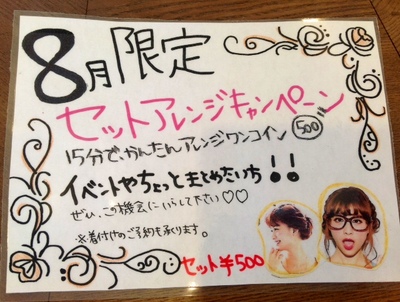 8月限定
セットアレンジキャンペーン
15分で、かんたんアレンジワンコイン 500
イベントやちょっとまとめたい方!!
ぜひ、この機会にいらして下さい♡♡
※着付けのご予約も承ります。
セット¥500